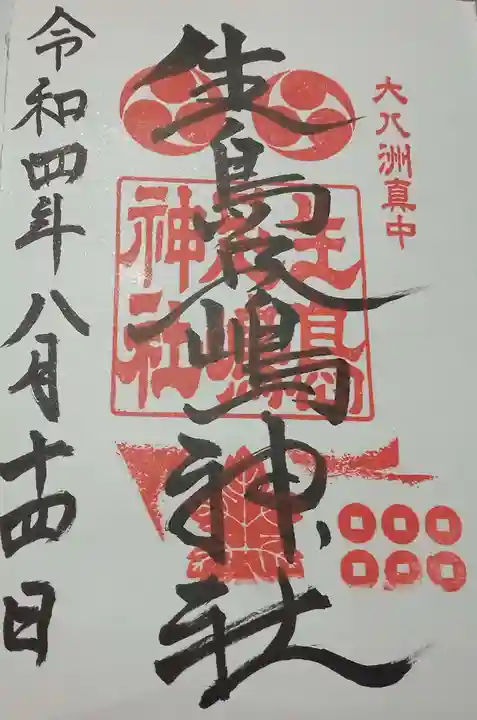 大八洲真中
生島足嶋神社
生島足嶋神社
令和四年八月十四日